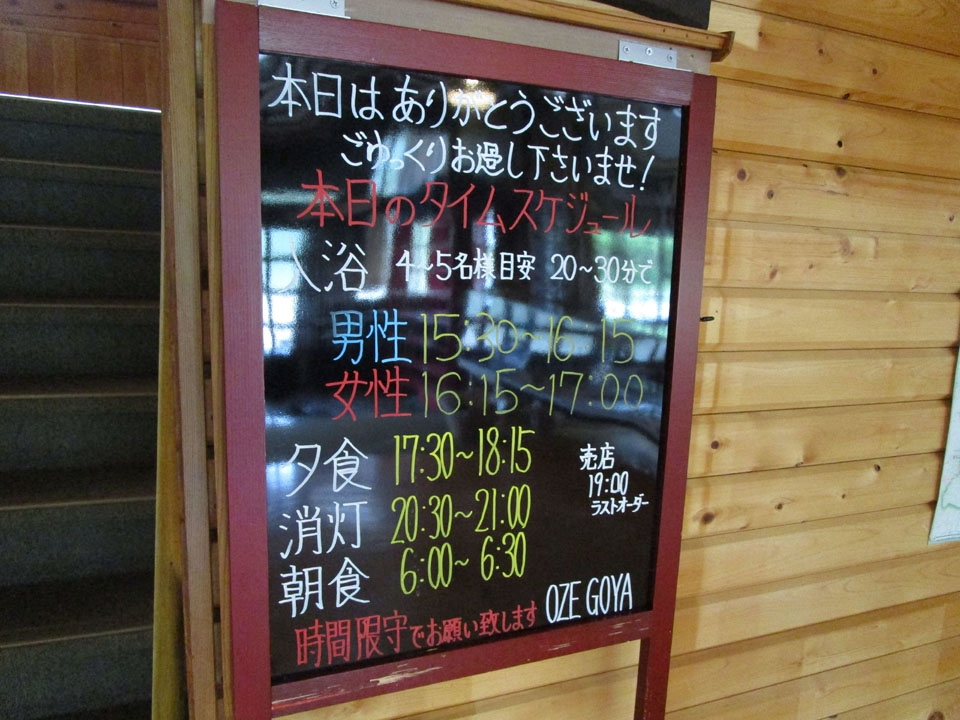 本日はありがとうございます
ごゆっくりお過し下さいませ!
本日のタイムスケジュール
入浴 4~5名様目安 20~30分で
男性 15:30~16:15
女性 16:15~17:00
夕食 17:30~18:15
消灯 20:30~21:00
朝食 6:00~6:30
売店
19:00
ラストオーダー
OZE GOYA
時間限守でお願い致します